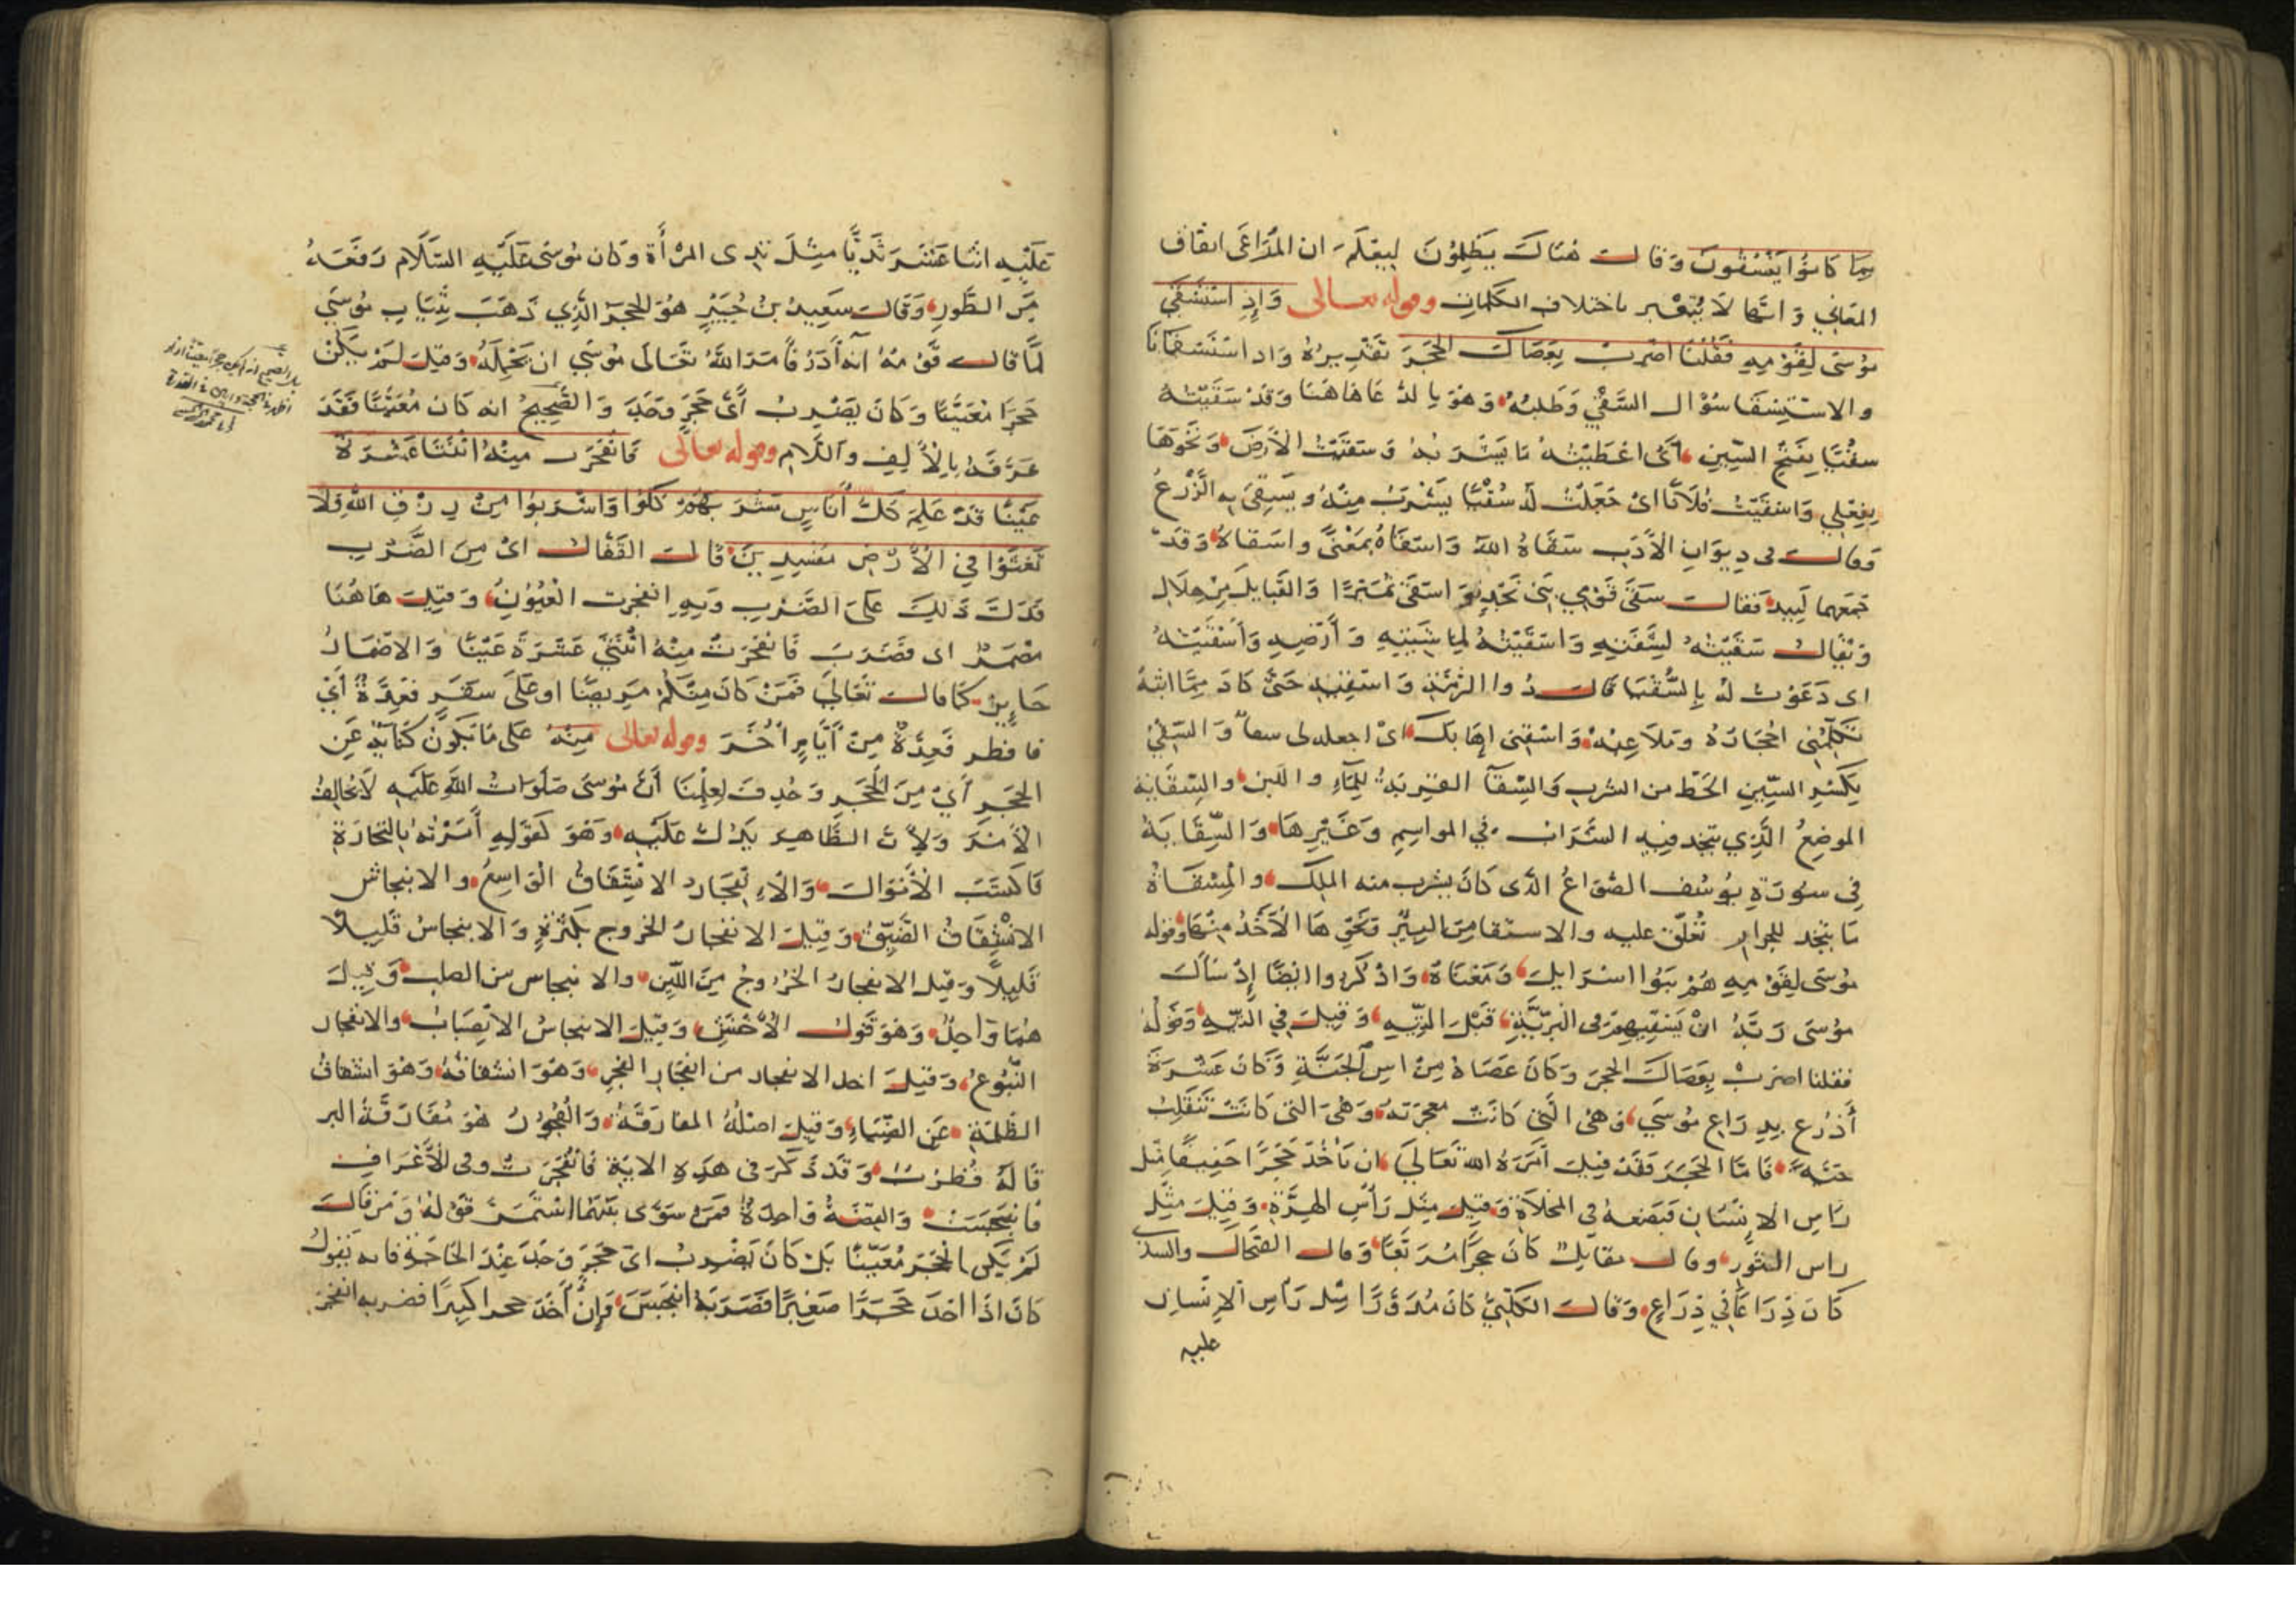 بِمَا كَانُوا يَفْسُقُونَ وَقَالَ هُنَاكَ يَظْلِمُونَ ليعلم ان المُرَاعَى اتفاق
المعَاني وَانهَا لَا يتغير باختلاف الكلمات وقوله تعالى وَإِذِ اسْتَسْقَى
مُوسَى لِقَوْمِهِ فَقُلْنَا اضْرِبْ بِعَصَاكَ الْحَجَرَ تَقْدِيرُهُ وَاذ استسقانا
والاستسقا سُؤال السَّقْي وَطلبُهُ وَهوَ بالدُّعَا هَاهُنَا وَقَدْ سَقَيْتُهُ
سقْيًا بِفَتْح السِّين أَيْ اعْطَيْتُهُ مَا يَشْرَبُهُ وَسَقَيْتُ الأَرْضَ وَنَحْوَهَا
بِفِعْلِي وَاسْقَيْتُ فُلَانًا اى جَعَلْتُ لَهُ سُقْيًا يَشْرَبُ مِنْهُ ويَسْقِي بِهِ الزَّرْعَ
وَقَال فى دِيوَانِ الأَدَبِ سَقَاهُ اللهُ وَاسْقَاهُ بِمَعْنًى واسقاهُ وَقَدْ
جَمَعَهما لَبِيد فَقَال سَقَى قَوْمِي بَنِي نَجْدٍ وَاسْقَى نُمَيْرًا وَالقَبَايِلَ مِنْ هِلَالِ
وَيُقَالُ سَقَيْتُهُ لِشَفَتِهِ وَاسْقَيْتُهُ لِمَاشِيَتِهِ وَأَرْضِهِ وَأَسْقَيْتُهُ
اى دَعَوْتُ لَهُ بِالسُّقْيَا قَال ذُو الرُّمَّةِ وَاسْقِيهِ حَتَّى كَادَ مِمَّا ابُثُّهُ
تُكَلِّمُنِي احْجَارُهُ وَمَلَاعِبُهُ وَاسْقِنِى اهابكَ اىْ اجعله لى سقاً وَالسِّقْيُ
بِكَسْرِ السِّينِ الحَظُّ من الشرب وَالسِّقَآ القِرْبَةُ لِلمَآءِ واللبن والسِّقَايَة
الموضِعُ الَّذِي يتخذ فِيهِ الشَّرَاب فِي المواسِمِ وَغَيْرِهَا وَالسِّقَايَةُ
فِي سُورَةِ يُوسُف الصُّوَاعُ الَّذى كَانَ يشرب منه الملِكُ والمِسْقَاةُ
مَا يتخذ للجِرَارِ تُعَلَّقُ عليه والاستقا مِنَ البِئْرِ وَنَحْوِهَا الأَخْذُ مِنْهَا وقوله
مُوسَى لِقَوْمِهِ هُمْ بَنُوا اسْرَايل وَمَعْنَاهُ وَاذكروا ايْضًا إِذْ سَأَلَ
مُوسَى رَبَّهُ انْ يَسْقِيَهم فى البَرِّيَّةِ قَبْلَ التِّيهِ وَقِيلَ فِي التِّيهِ وَقَوْلُهُ
فقلنا اضْرِبْ بِعَصَاكَ الحجَرَ وَكَانَ عَصَاهُ مِنْ اسِ الْجَنَّةِ وَكَانَ عَشْرَةَ
أَذْرُعٍ بِذِرَاعِ مُوسَى وَهى الَّتِي كَانَتْ معجزَتَهُ وَهِيَ التي كَانَتْ تَنْقَلِبُ
حَيَّةً فَامَّا الحَجَرُ فَقَدْ قِيلَ أَمَرَهُ اللهُ تَعَالَى ان يَأْخُذَ حَجَرًا خَفِيفًا مِثْلَ
رَاسِ الإِنْسَانِ فَيَضَعهُ في المخلَاةِ وَقِيلَ مِثْل رَأْسِ الهِرَّةِ وَقِيلَ مِثْلَ
راس الثَّوْر وقال مقاتِل كَانَ حجرًا مُرَبَّعًا وَقال الضَّحَاك والسدّي
كَانَ ذِرَاعًا فِي ذِرَاعٍ وَقَال الكَلْبِيُّ كَانَ مُدَوَّرًا مِثل رَأسِ الإِنْسَانِ
عليه
عَلَيْهِ اثنا عَشَرَ ثَدْيًا مِثْلَ ثدي المرْأَةِ وَكَان مُوسَى عَلَيْهِ السَّلَام رَفَعَهُ
مِن الطُّورِ وَقَالَ سَعِيدُ بْنُ جُبَيْرٍ هُوَ الحَجَرُ الَّذِي ذَهَبَ بِثِيَابِ مُوسَى
لَمَّا قَالَ قَوْمُهُ انهُ أَدَرُ فَأَمَرَ اللهُ تَعَالَى مُوسَى ان يَحْمِلَهُ وَقِيلَ لَمْ يَكُنْ
حَجَرًا مُعَيَّنًا وَكَانَ يَضْرِبُ أَيَّ حَجَرٍ وَجَدَ وَالصَّحِيحُ انه كَانَ مُعَيَّنًا فَقَدْ
عَرَّفَهُ بِالأَلِفِ واللَّامِ وقوله تعالى فَانْفَجَرَتْ مِنْهُ اثْنَتَا عَشْرَةَ
عَيْنًا قَدْ عَلِمَ كُلُّ أُنَاسٍ مَشْرَبَهُمْ كُلُوا وَاشْرَبُوا مِنْ رِزْقِ اللهِ وَلَا
تَعْثَوْا فِي الأَرْضِ مُفْسِدِينَ قَالَ القَفَّالُ اىْ مِنَ الضَّرْبِ
فَدَلَّ ذَلِكَ عَلَى الضَّرْبِ وَبِهِ انفجرت الْعُيُوْنُ وَقِيلَ هَاهُنَا
مُضْمَرٌ اى فَضَرَبَ فَانفَجَرَتْ مِنْهُ اثْنَتَى عَشْرَةَ عَيْنًا وَالاضْمَارُ
جَايِزٌ كَمَا قَالَ تَعَالَى فَمَنْ كَانَ مِنْكُمْ مَرِيضًا او عَلَى سَفَرٍ فَعِدَّةٌ أَيْ
فافطر فَعِدَّةٌ مِنْ أَيَّامٍ أُخَرَ وقوله تعالى مِنْهُ عَلَى مَا يَكُونُ كِنَايَةً عَنِ
الحَجَرِ أَيْ مِنَ الْحَجَرِ وَحُذِفَ لِعِلْمِنَا أَنَّ مُوسَى صَلَوَاتُ اللَّهِ عَلَيْهِ لَا يُخَالِفُ
الأَمْرَ وَلِأَنَّ الظَّاهِرَ يَدُلُّ عَلَيْهِ وَهُوَ كَقَوْلِهِ أَمَرْتُهُ بِالتِّجَارَةِ
فَاكْتَسَبَ الْأَمْوَالَ وَالانْفِجَارُ الانْشِقَاقُ الوَاسِعُ والانبجاسُ
الانْشِقَاقُ الضَّيِّقُ وَقِيلَ الانفجارُ الخروج بِكَثْرَةٍ وَالانبجاسُ قَلِيلًا
قَلِيلًا وَقِيلَ الانفجارُ الخُرُوجُ مِنَ اللَّيِّنِ والانبجاس من الصلب وَقِيلَ
هُمَا وَاحِدٌ وَهُوَ قَوْلُ الأَخْفَشِ وَقِيلَ الانبجاسُ الانْصِبَابُ والانفجار
النُّبُوعُ وَقِيلَ اخذ الانفجار من انفجَارِ الفجرِ وَهُوَ انشقاقُهُ وَهُوَ انشقاقُ
الظُّلمَةِ عَنِ الضِّيَاءِ وَقِيلَ اصْلُهُ المفارَقَةُ وَالْفُجُورُ هُوَ مُفَارَقَةُ البر
قَالَهُ قُطْرُبٌ وَقَدْ ذَكَرَ فى هَذِهِ الاية فَانْفَجَرَتْ وفى الأَعْرَافِ
فَانْبَجَسَتْ وَالقِصَّةُ وَاحِدَةٌ فَمَنْ سَوَّى بَيْنَهُمَا اسْتَمَرَّ قَوْلُهُ وَمَنْ قَالَ
لَمْ يَكُنِ الحَجَرُ مُعَيَّنًا بَلْ كَانَ يَضْرِبُ اىَّ حَجَرٍ وَجَدَ عِنْدَ الحَاجَةِ فانه يَقُولُ
كَانَ اذَا اخَذَ حَجَرًا صَغِيرًا فَضَرَبَهُ انْبَجَسَ وَإِنْ أَخَذَ حجرا كبيرًا فضربه انفجر